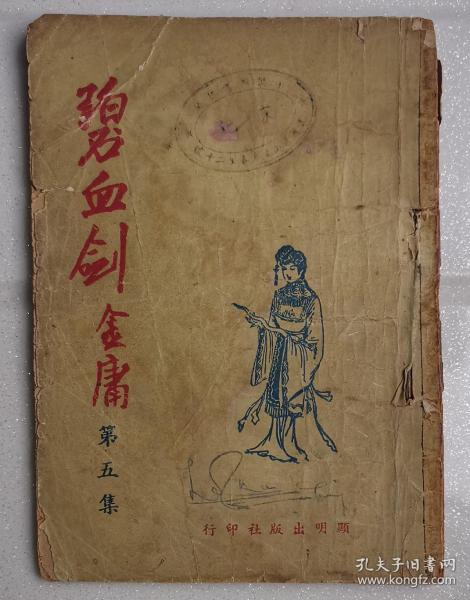 碧血剑
金庸
第五集
顯明出版社印行
孔夫子旧书网
www.kongfz.com